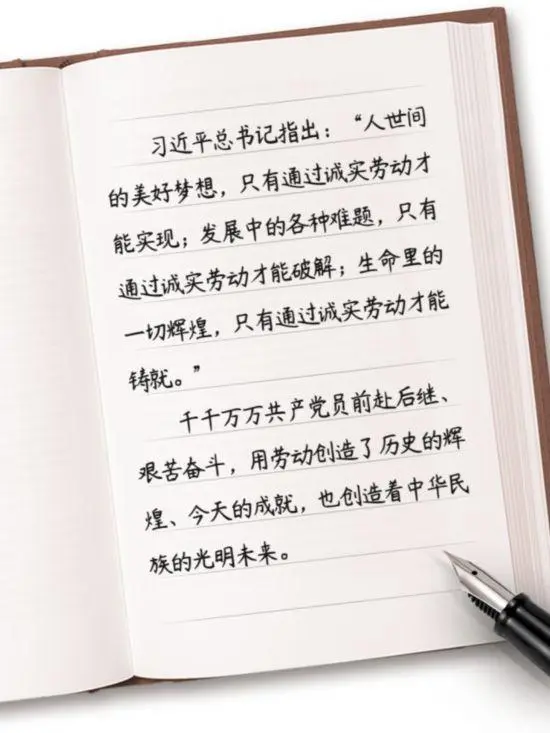 习近平总书记指出：“人世间
的美好梦想，只有通过诚实劳动才
能实现；发展中的各种难题，只有
通过诚实劳动才能破解；生命里的
一切辉煌，只有通过诚实劳动才能
铸就。”
千千万万共产党员前赴后继、
艰苦奋斗，用劳动创造了历史的辉
煌、今天的成就，也创造着中华民
族的光明未来。